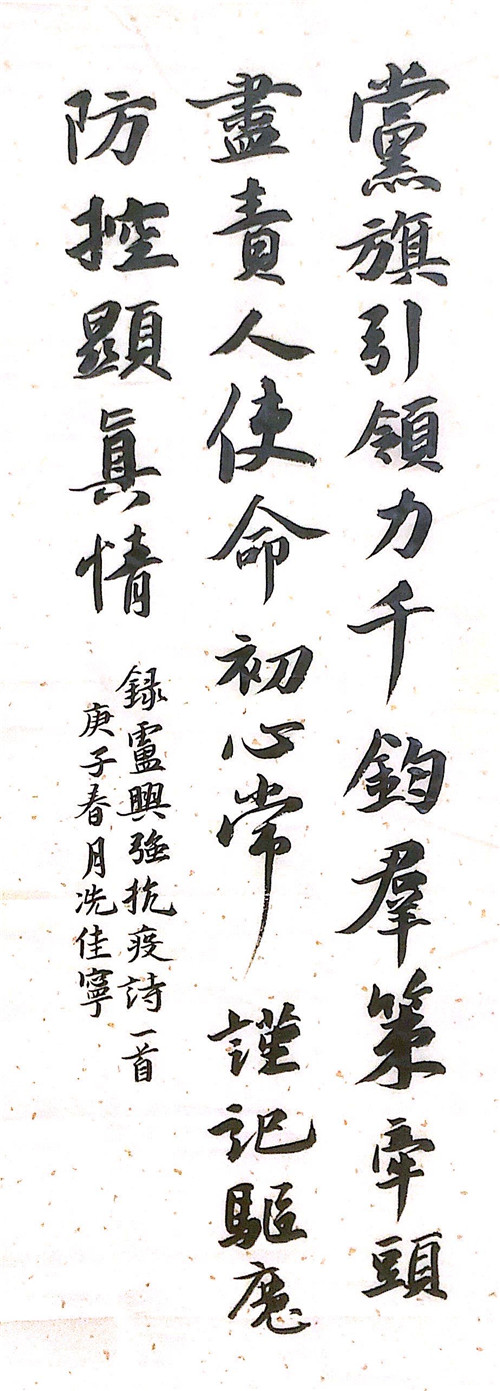 黨旗引領力千鈞羣策牽頭
盡責人使命初心常謹記驅魔
防控顯真情
録盧興強抗疫詩一首
庚子春月冼佳寧